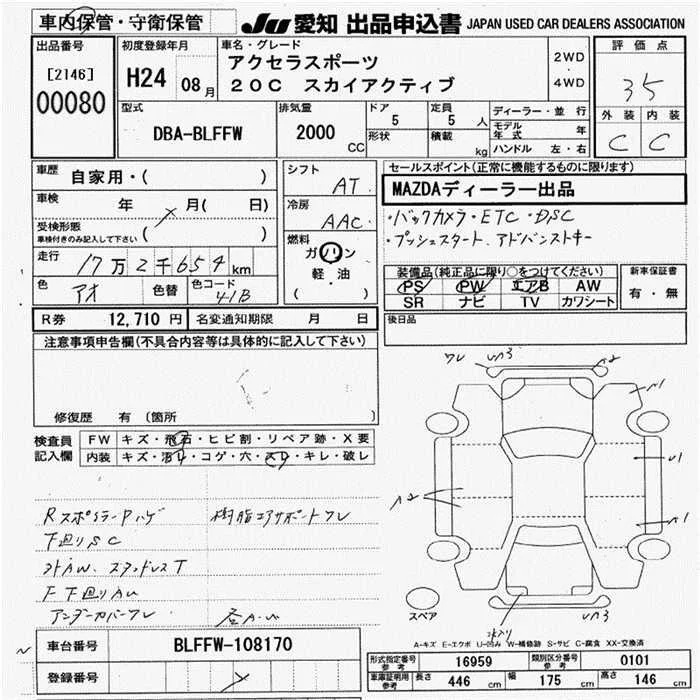 車内保管・守衛保管 JU 愛知 出品申込書 JAPAN USED CAR DEALERS ASSOCIATION
出品番号 初度登録年月 車名・グレード 評価点
[2146] H24 08月 アクセラスポーツ 2WD
00080 20C スカイアクティブ 4WD 35
型式 排気量 ドア 定員 ディーラー・並行 外装 内装
DBA-BLFFW 2000 CC 5 5 人 モデル年式 年 C C
形状 積載 kg ハンドル 左・右
車歴 自家用・( ) シフト AT セールスポイント(正常に機能するものに限ります)
車検 年 月( 日) 冷房 AAC MAZDAディーラー出品
受検形態 ( )
車検付きのみ記入して下さい
・バックカメラ・ETC・DSC
走行 17万2千654km 燃料 ガソリン ・プッシュスタート、アドバンストキー
色 アオ 色替 色コード 41B 軽・油 ( )
装備品(純正品に限り○をつけてください) 新車保証書
PS PW エアB AW 有・無
SR ナビ TV カワシート
R券 12,710 円 名変通知期限 月 日 後日品
注意事項申告欄(不具合内容等は具体的に記入して下さい)
修復歴 有 〔箇所
検査員記入欄 FW キズ・飛石・ヒビ割・リペア跡・X要
内装 キズ・汚レ・コゲ・穴・スレ・キレ・破レ
ワレ
RスポイラーPハゲ 樹脂エアサポートワレ
下廻りSC
F下廻りAU
アンダーカバーワレ
スペア
A-キズ E-エクボ U-凹み W-補修跡 S-サビ C-腐食 XX-交換済
車台番号 BLFFW-108170
登録番号
形式指定番号 参考 16959 類別区分番号 参考 0101
車庫証明用 参考 長さ 446 cm 幅 175 cm 高さ 146 cm